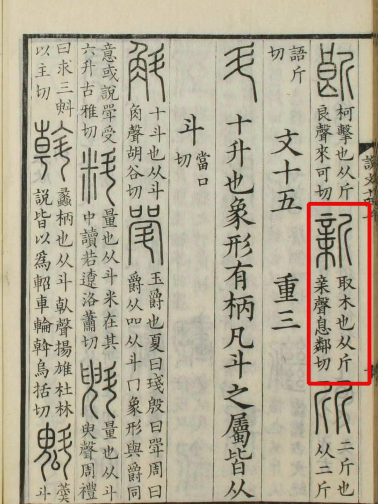 𣂪 柯擊也从斤良聲來可切 新 取木也从斤亲聲息鄰切 斦 二斤也从二斤
語斤切 文十五 重三
斗 十升也象形有柄凡斗之屬皆从
斗 當口切
斛 十斗也从斗角聲胡谷切 斝 玉爵也夏曰琖殷曰斝周曰爵从吅从斗冂象形與爵同
意或說斝受六升古雅切 料 量也从斗米在其中讀若遼洛蕭切 斞 量也从斗臾聲周禮
曰求三斞以主切 斡 蠡柄也从斗倝聲揚雄杜林說皆以爲軺車輪斡烏括切 魁 羹斗